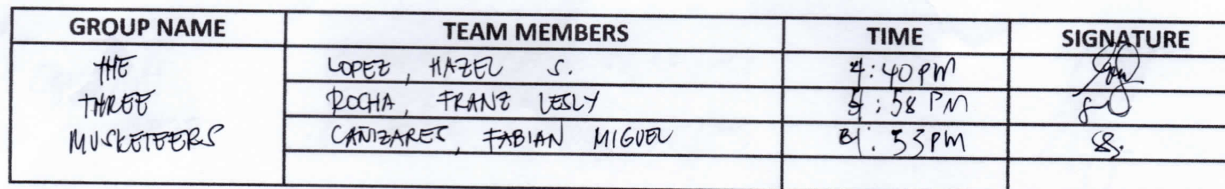 GROUP NAME TEAM MEMBERS TIME SIGNATURE
THE THREE MUSKETEERS
LOPEZ, HAZEL S. 4:40PM
ROCHA, FRANZ LESLY :58 PM
CAÑIZARES, FABIAN MIGUEL :53PM